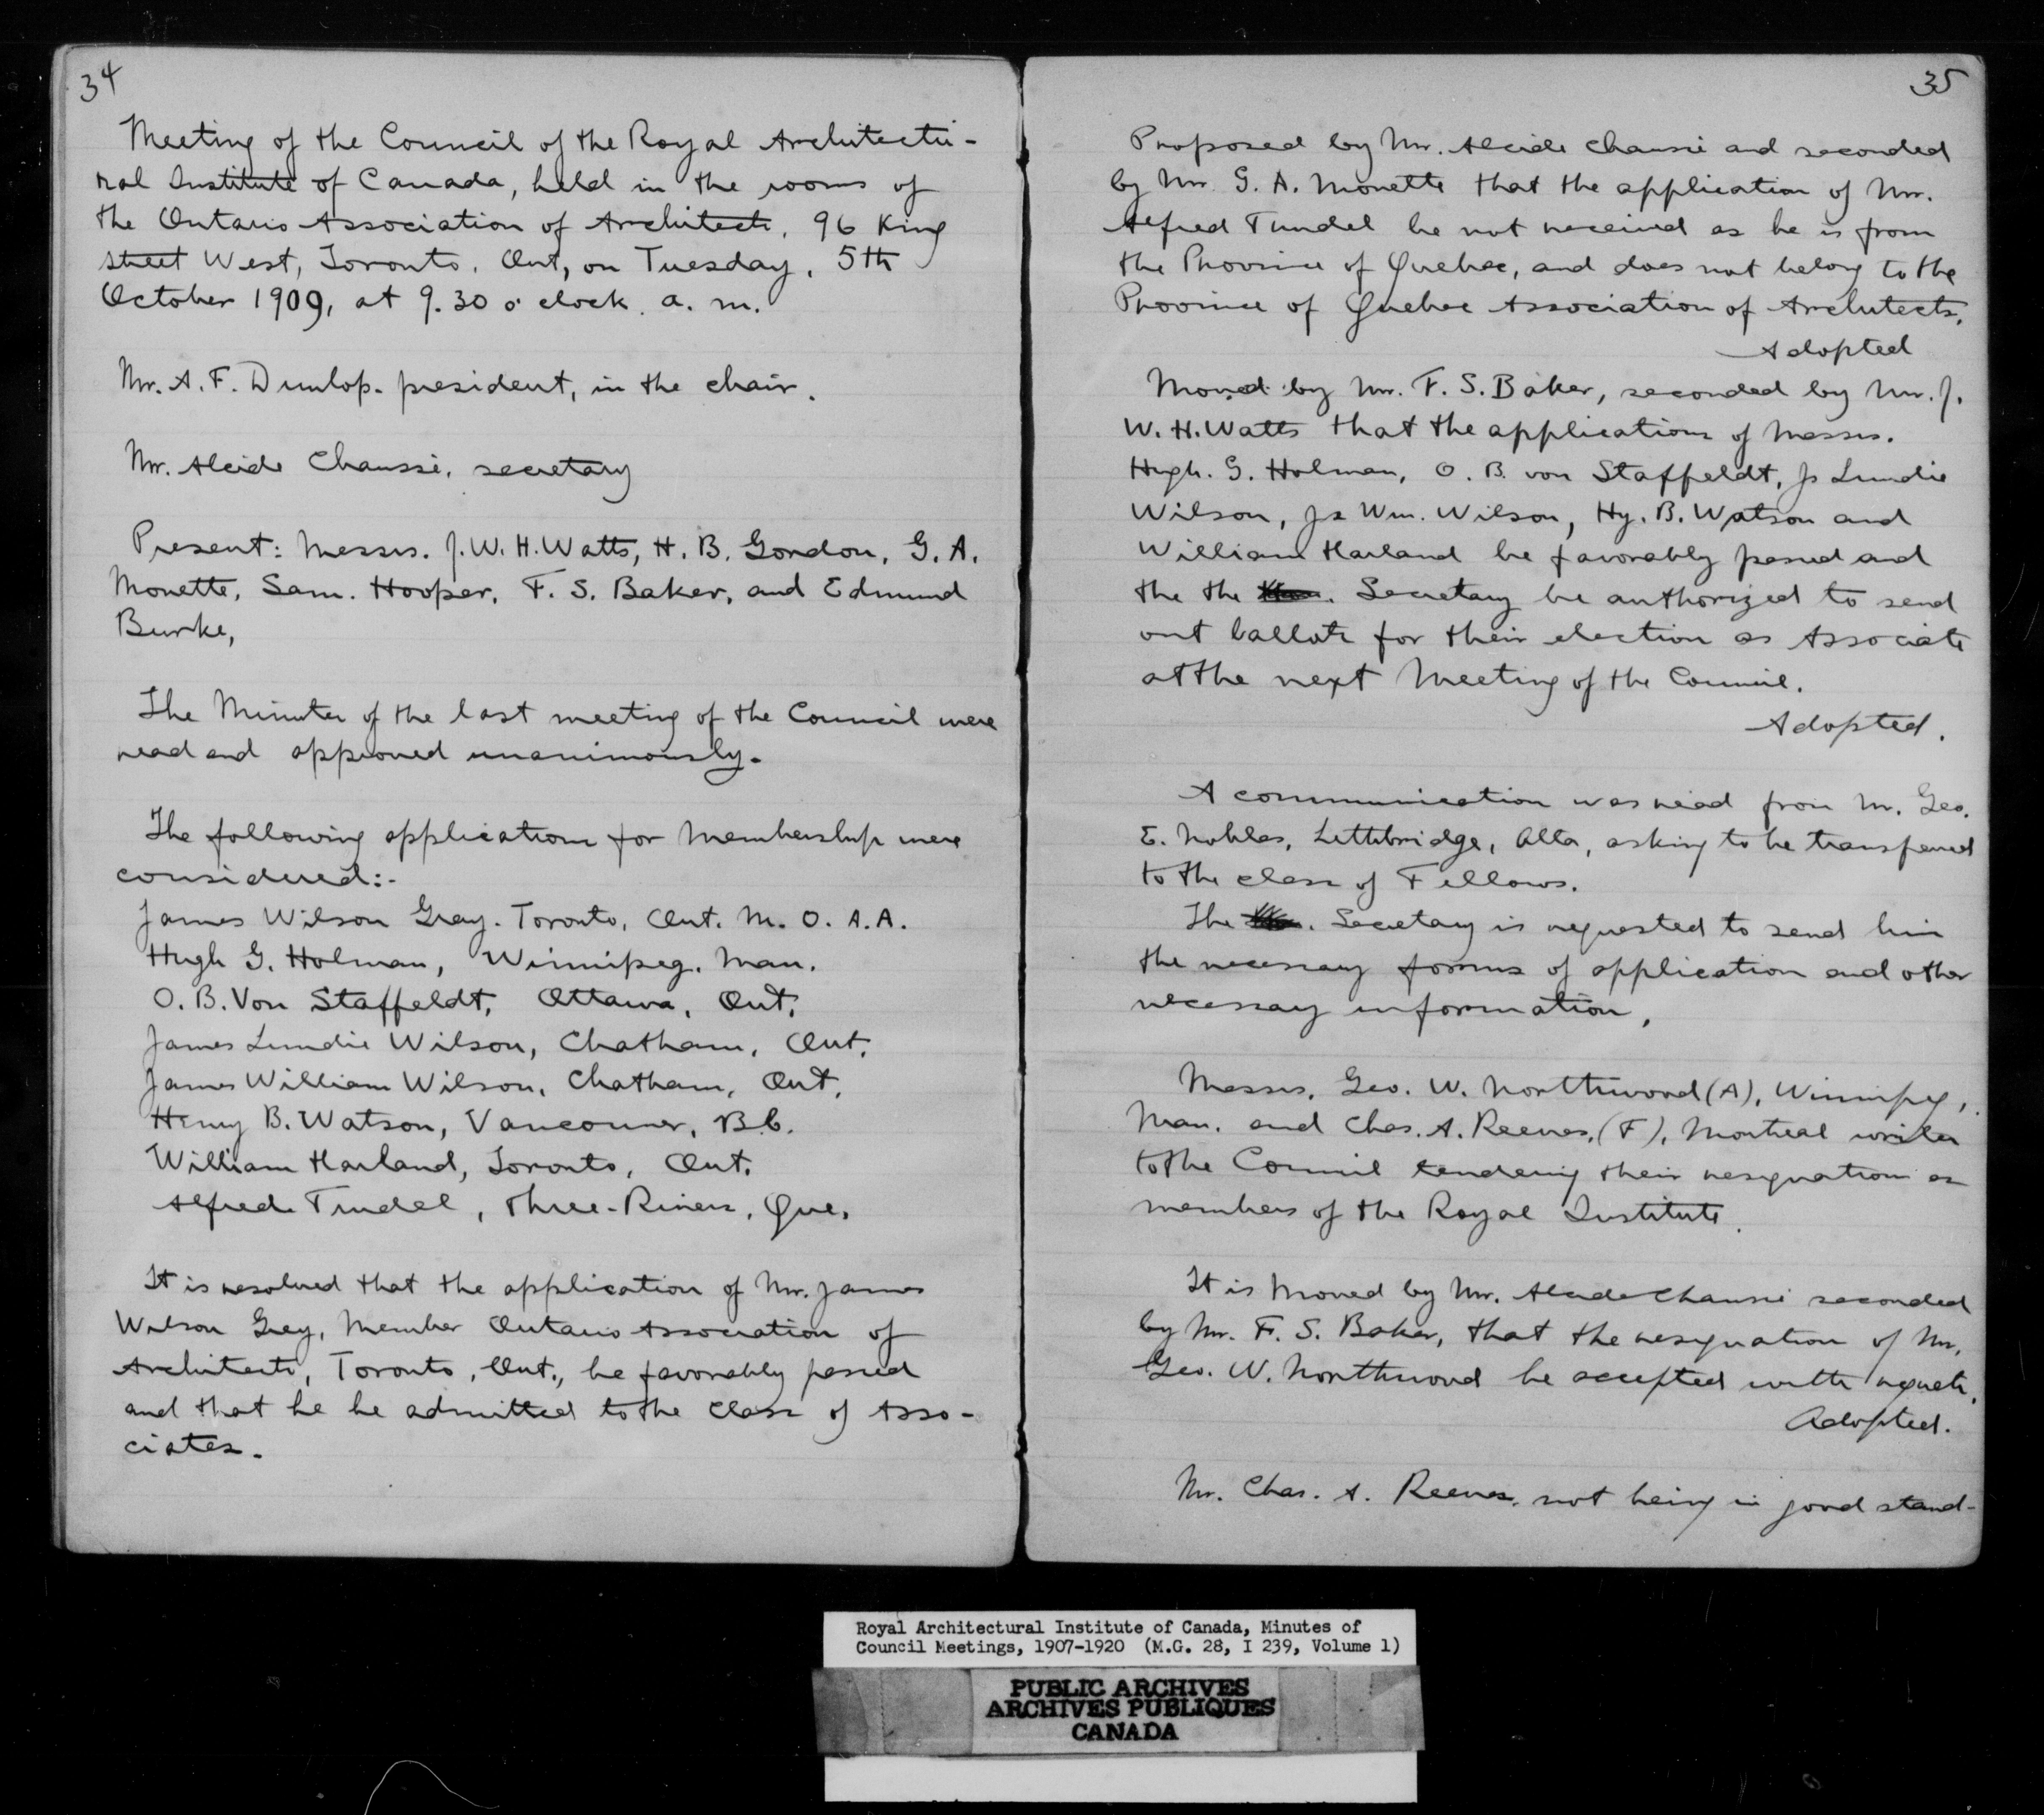 34
Meeting of the Council of the Royal Architectu-
ral Institute of Canada, held in the rooms of
the Ontario Association of Architects, 96 King
street West, Toronto, Ont, on Tuesday, 5th
October 1909, at 9.30 o'clock. a. m.
Mr. A. F. Dunlop. president, in the chair.
Mr. Alcide Chaussé, secretary
Present: Messrs. J. W. H. Watts, H. B. Gordon, G. A.
Monette, Sam. Hooper, F. S. Baker, and Edmund
Burke,
The Minutes of the last meeting of the Council were
read and approved unanimously.
The following applications for Membership were
considered:-
James Wilson Gray. Toronto, Ont. M. O. A. A.
Hugh G. Holman, Winnipeg, Man.
O. B. Von Staffeldt, Ottawa, Ont.
James Lundie Wilson, Chatham, Ont.
James William Wilson, Chatham, Ont.
Henry B. Watson, Vancouver, B.C.
William Harland, Toronto, Ont.
Alfred Trudel, Three-Rivers, Que.
It is resolved that the application of Mr. James
Wilson Grey, Member Ontario Association of
Architects, Toronto, Ont., be favorably passed
and that he be admitted to the class of Asso-
ciates.
35
Proposed by Mr. Alcide Chaussé and seconded
by Mr. G. A. Monette that the application of Mr.
Alfred Trudel be not received as he is from
the Province of Quebec, and does not belong to the
Province of Quebec Association of Architects.
Adopted
Moved by Mr. F. S. Baker, seconded by Mr. J.
W. H. Watts that the applications of Messrs.
Hugh. G. Holman, O. B. von Staffeldt, Js Lundie
Wilson, Js Wm. Wilson, Hy. B. Watson and
William Harland be favorably passed and
the the Secretary be authorized to send
out ballots for their election as Associate
at the next Meeting of the Council.
Adopted.
A communication was read from Mr. Geo.
E. Nobles, Lethbridge, Alta, asking to be transferred
to the class of Fellows.
The Secretary is requested to send him
the necessary forms of application and other
necessary information.
Messrs. Geo. W. Northwood (A), Winnipeg,
Man. and Chas. A. Reeves, (F), Montreal writes
to the Council tendering their resignation as
members of the Royal Institute.
It is Moved by Mr. Alcide Chaussé seconded
by Mr. F. S. Baker, that the resignation of Mr.
Geo. W. Northwood be accepted with regrets.
Adopted.
Mr. Chas. A. Reeves, not being in good stand-
Royal Architectural Institute of Canada, Minutes of
Council Meetings, 1907-1920 (M.G. 28, I 239, Volume 1)
PUBLIC ARCHIVES
ARCHIVES PUBLIQUES
CANADA